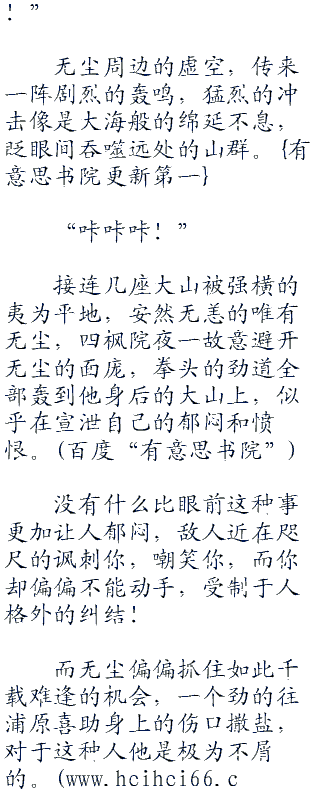 ！”
无尘周边的虚空，传来
一阵剧烈的轰鸣，猛烈的冲
击像是大海般的绵延不息，
眨眼间吞噬远处的山群。{有
意思书院更新第一}
“咔咔咔！”
接连几座大山被强横的
夷为平地，安然无恙的唯有
无尘，四枫院夜一故意避开
无尘的面庞，拳头的劲道全
部轰到他身后的大山上，似
乎在宣泄自己的郁闷和愤
恨。(百度“有意思书院”)
没有什么比眼前这种事
更加让人郁闷，敌人近在咫
尺的讽刺你，嘲笑你，而你
却偏偏不能动手，受制于人
格外的纠结！
而无尘偏偏抓住如此千
载难逢的机会，一个劲的往
浦原喜助身上的伤口撒盐，
对于这种人他是极为不屑
的。(www.hcihci66.c